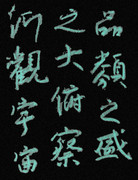 仰觀宇宙
之大俯察
品類之盛